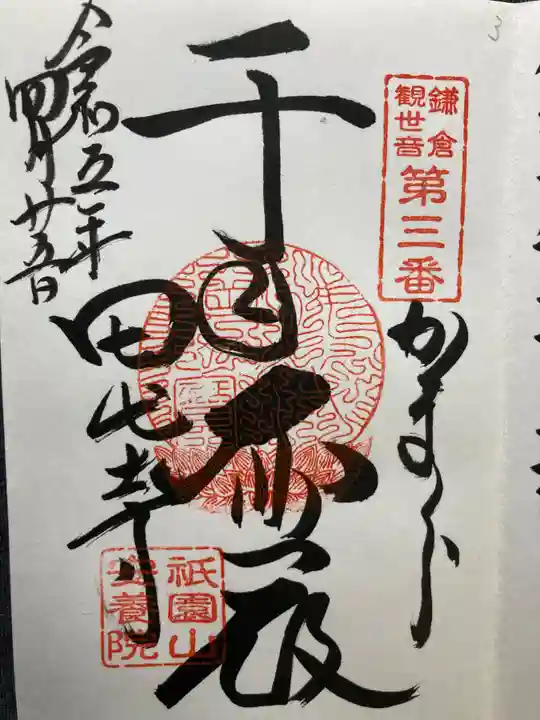 3
鎌倉
観世音
第三番
かまくら
千手大悲殿
田代寺
令和五年
四月廿五日
祇園山
安養院